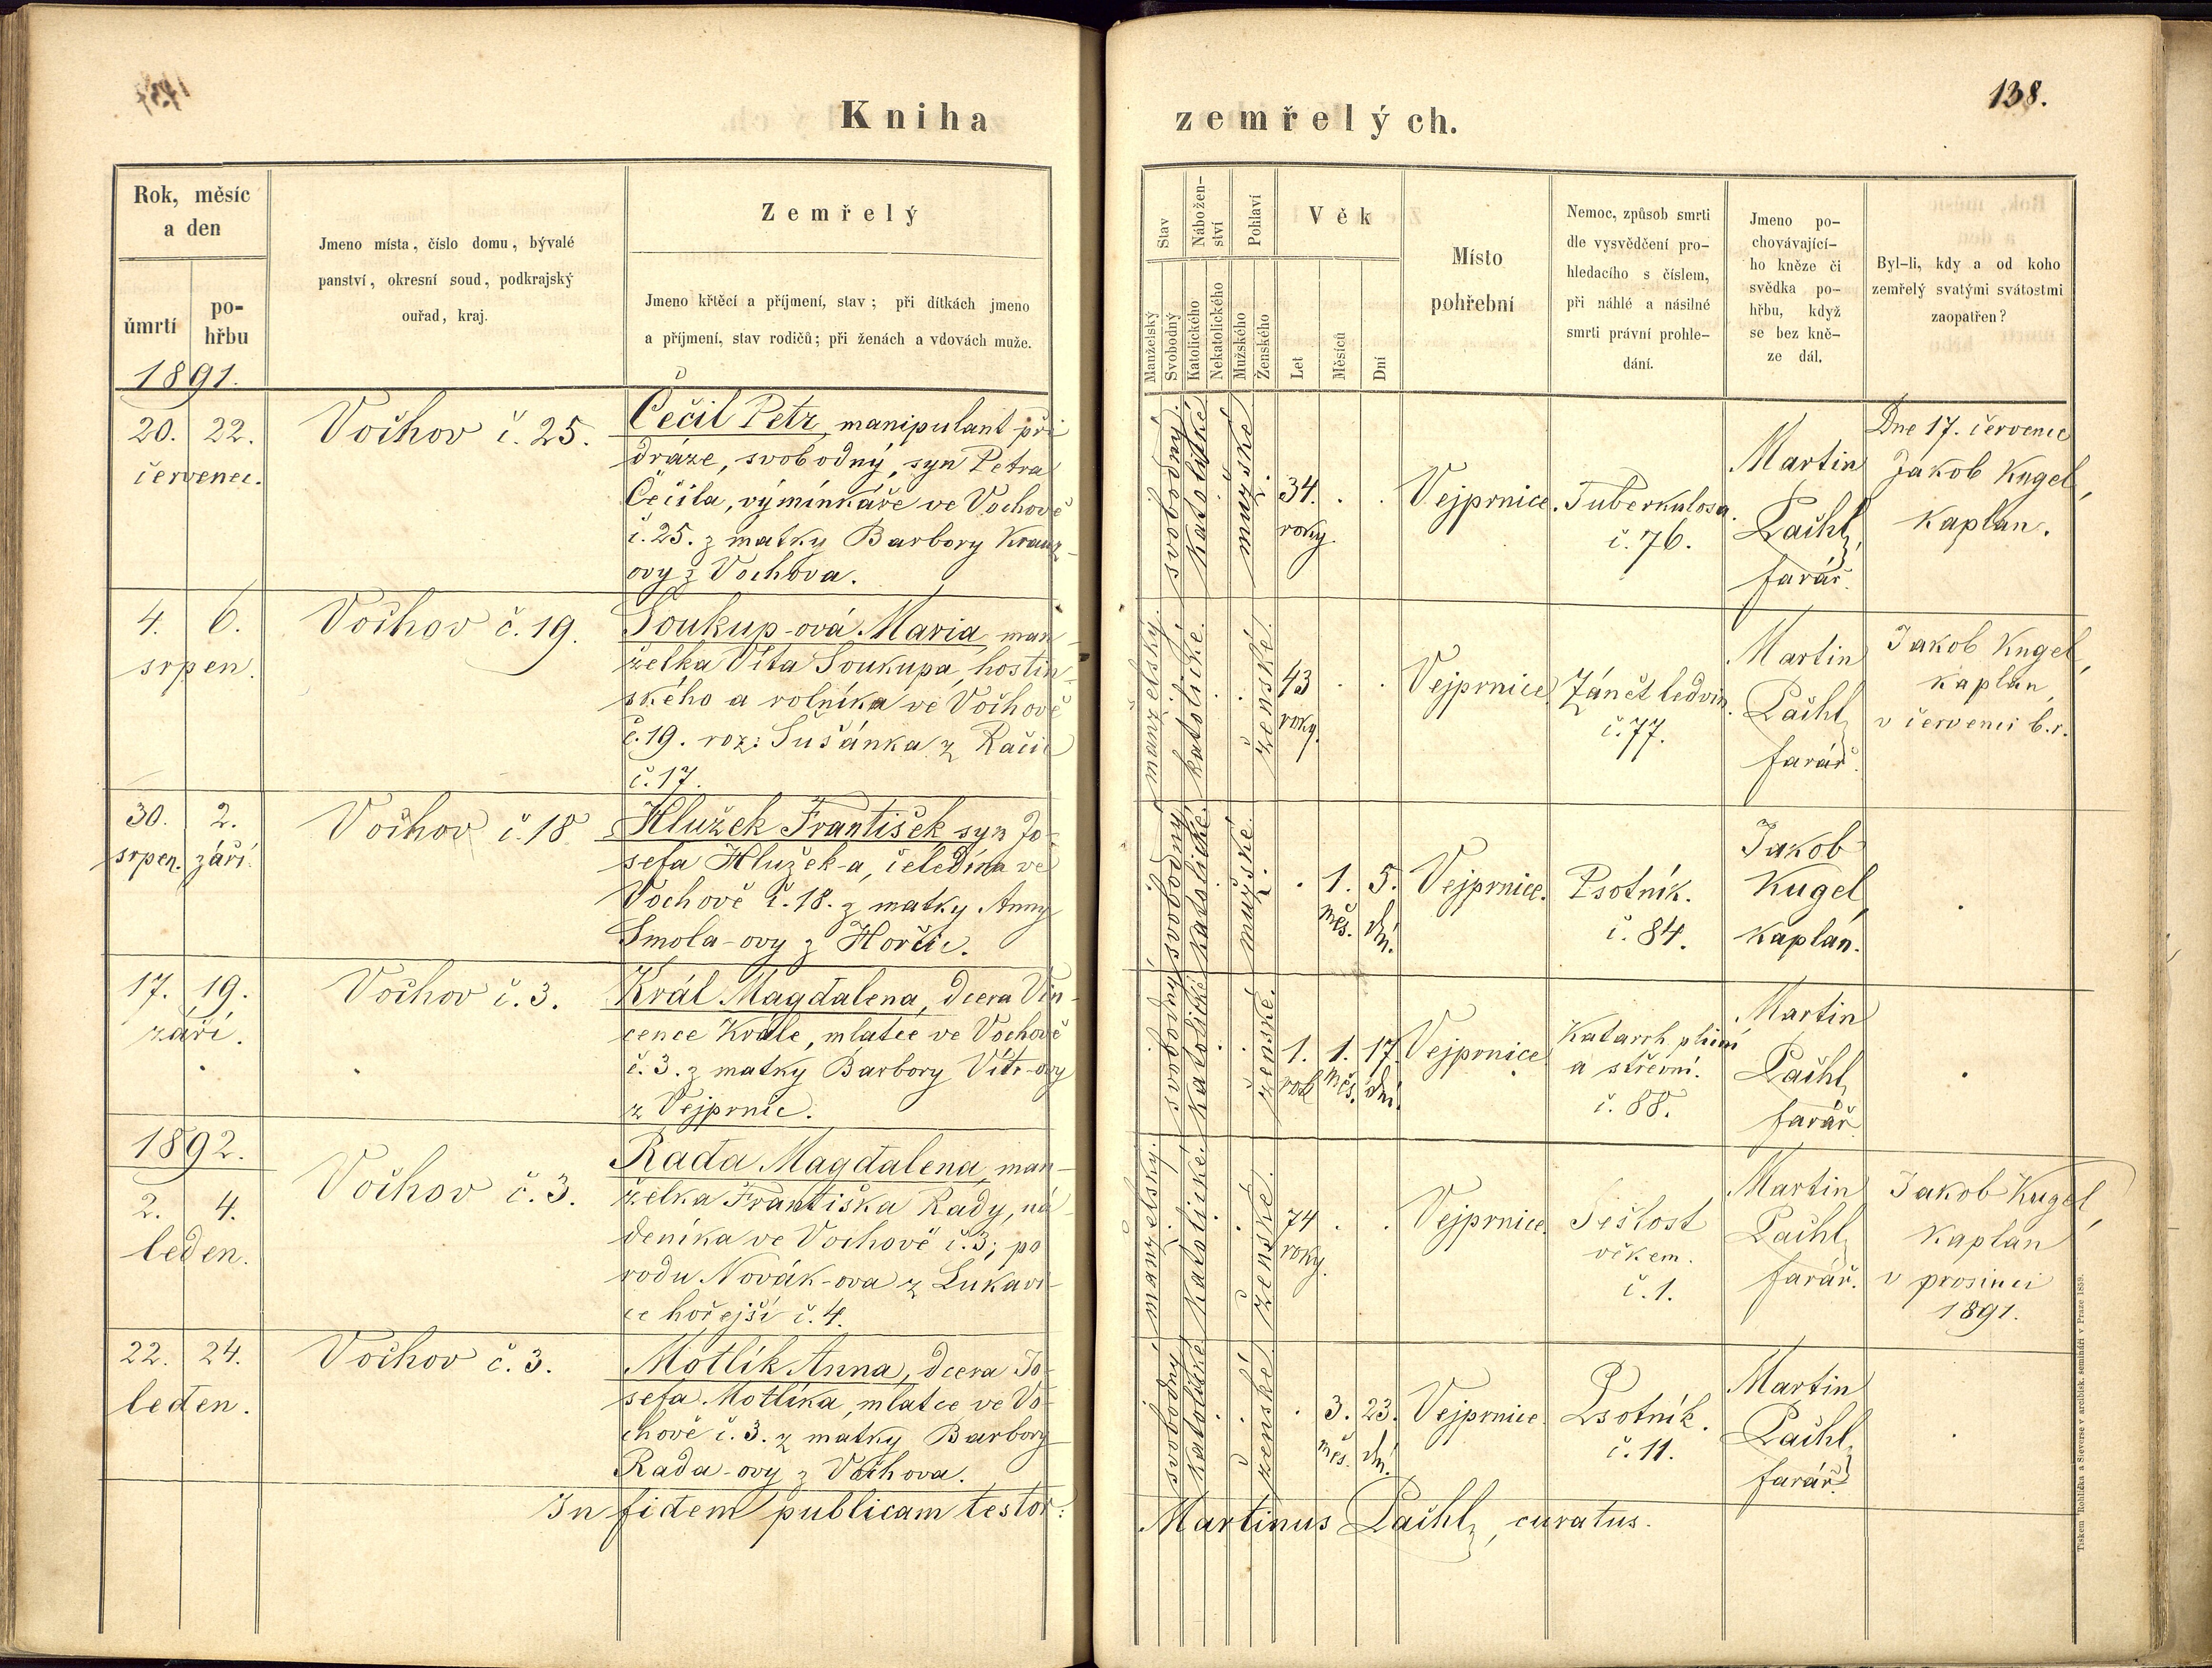 138.
Kniha zemřelých.
Rok, měsíc
a den
úmrtí
po-
hřbu
Jmeno místa, číslo domu, bývalé
panství, okresní soud, podkrajský
ouřad, kraj.
Zemřelý
Jmeno křtěcí a příjmení, stav; při dítkách jmeno
a příjmení, stav rodičů; při ženách a vdovách muže.
Stav
Manželský
Svobodný
Nábožen-
ství
Katolického
Nekatolického
Pohlaví
Mužského
Ženského
Věk
Let
Měsíců
Dní
Místo
pohřební
Nemoc, způsob smrti
dle vysvědčení pro-
hledacího s číslem,
při náhlé a násilné
smrti právní prohle-
dání.
Jmeno po-
chovávající-
ho kněze či
svědka po-
hřbu, když
se bez kně-
ze dál.
Byl-li, kdy a od koho
zemřelý svatými svátostmi
zaopatřen?
1891.
20. 22.
červenec.
Vochov č. 25.
Čečil Petr, manipulant při
dráze, svobodný, syn Petra
Čečila, výminkáře ve Vochově
č. 25. z matky Barbory
ovy z Vochova.
svobodný.
katolické
mužské
34.
roky.
Vejprnice.
Tuberkulosa.
č. 76.
Martin
Pachl,
farář.
Dne 17. červenec
Jakob Kugel,
kaplan.
4. 6.
srpen.
Vochov č. 19.
Soukup-ová Maria, man-
želka Víta Soukupa, hostin-
ského a rolníka ve Vochově
č. 19. roz: Sušánka z Račic
č. 17.
manželský.
katolické.
ženské.
43
roky.
Vejprnice
Zánět ledvin.
č. 77.
Martin
Pachl,
farář.
Jakob Kugel,
kaplan,
v červenci b.r.
30. 2.
srpen. září.
Vochov č. 18
Hlužek František syn Jo-
sefa Hlužek-a, čeledína ve
Vochově č. 18. z matky Anny
Smola-ovy z Hořčic.
svobodný
katolické.
mužské.
1. 5.
měs. dní.
Vejprnice.
Psotník.
č. 84.
Jakob
Kugel,
kaplán.
17. 19.
září.
Vochov č. 3.
Král Magdalena, dcera Vin-
cence Krále, mlatce ve Vochově
č. 3. z matky Barbory Vít-ovy
z Vejprnic.
svobodný
katolické
ženské.
1. 1. 17.
rok měs. dní.
Vejprnice
Katarrh plicní
a střevní.
č. 88.
Martin
Pachl,
farář.
1892.
2. 4.
leden.
Vochov č. 3.
Rada Magdalena, man-
želka Františka Rady, ná-
deníka ve Vochově č. 3; po
rodu Novák-ova z Lukavi-
ce hořejší č. 4.
manželský.
katolické.
ženské.
74
roky.
Vejprnice.
Sešlost
věkem.
č. 1.
Martin
Pachl,
farář.
Jakob Kugel,
kaplan
v prosinci
1891.
22. 24.
leden.
Vochov č. 3.
Motlík Anna, dcera Jo-
sefa Motlíka, mlatce ve Vo-
chově č. 3. z matky Barbory
Rada-ovy z Vochova.
svobodný
katolické
ženské
3. 23.
měs. dní.
Vejprnice.
Psotník.
č. 11.
Martin
Pachl,
farář.
In fidem publicam testor:
Martinus Pachl, curatus.
Tiskem Rohlíčka a Sieverse v arcibisk. semináři v Praze 1859.